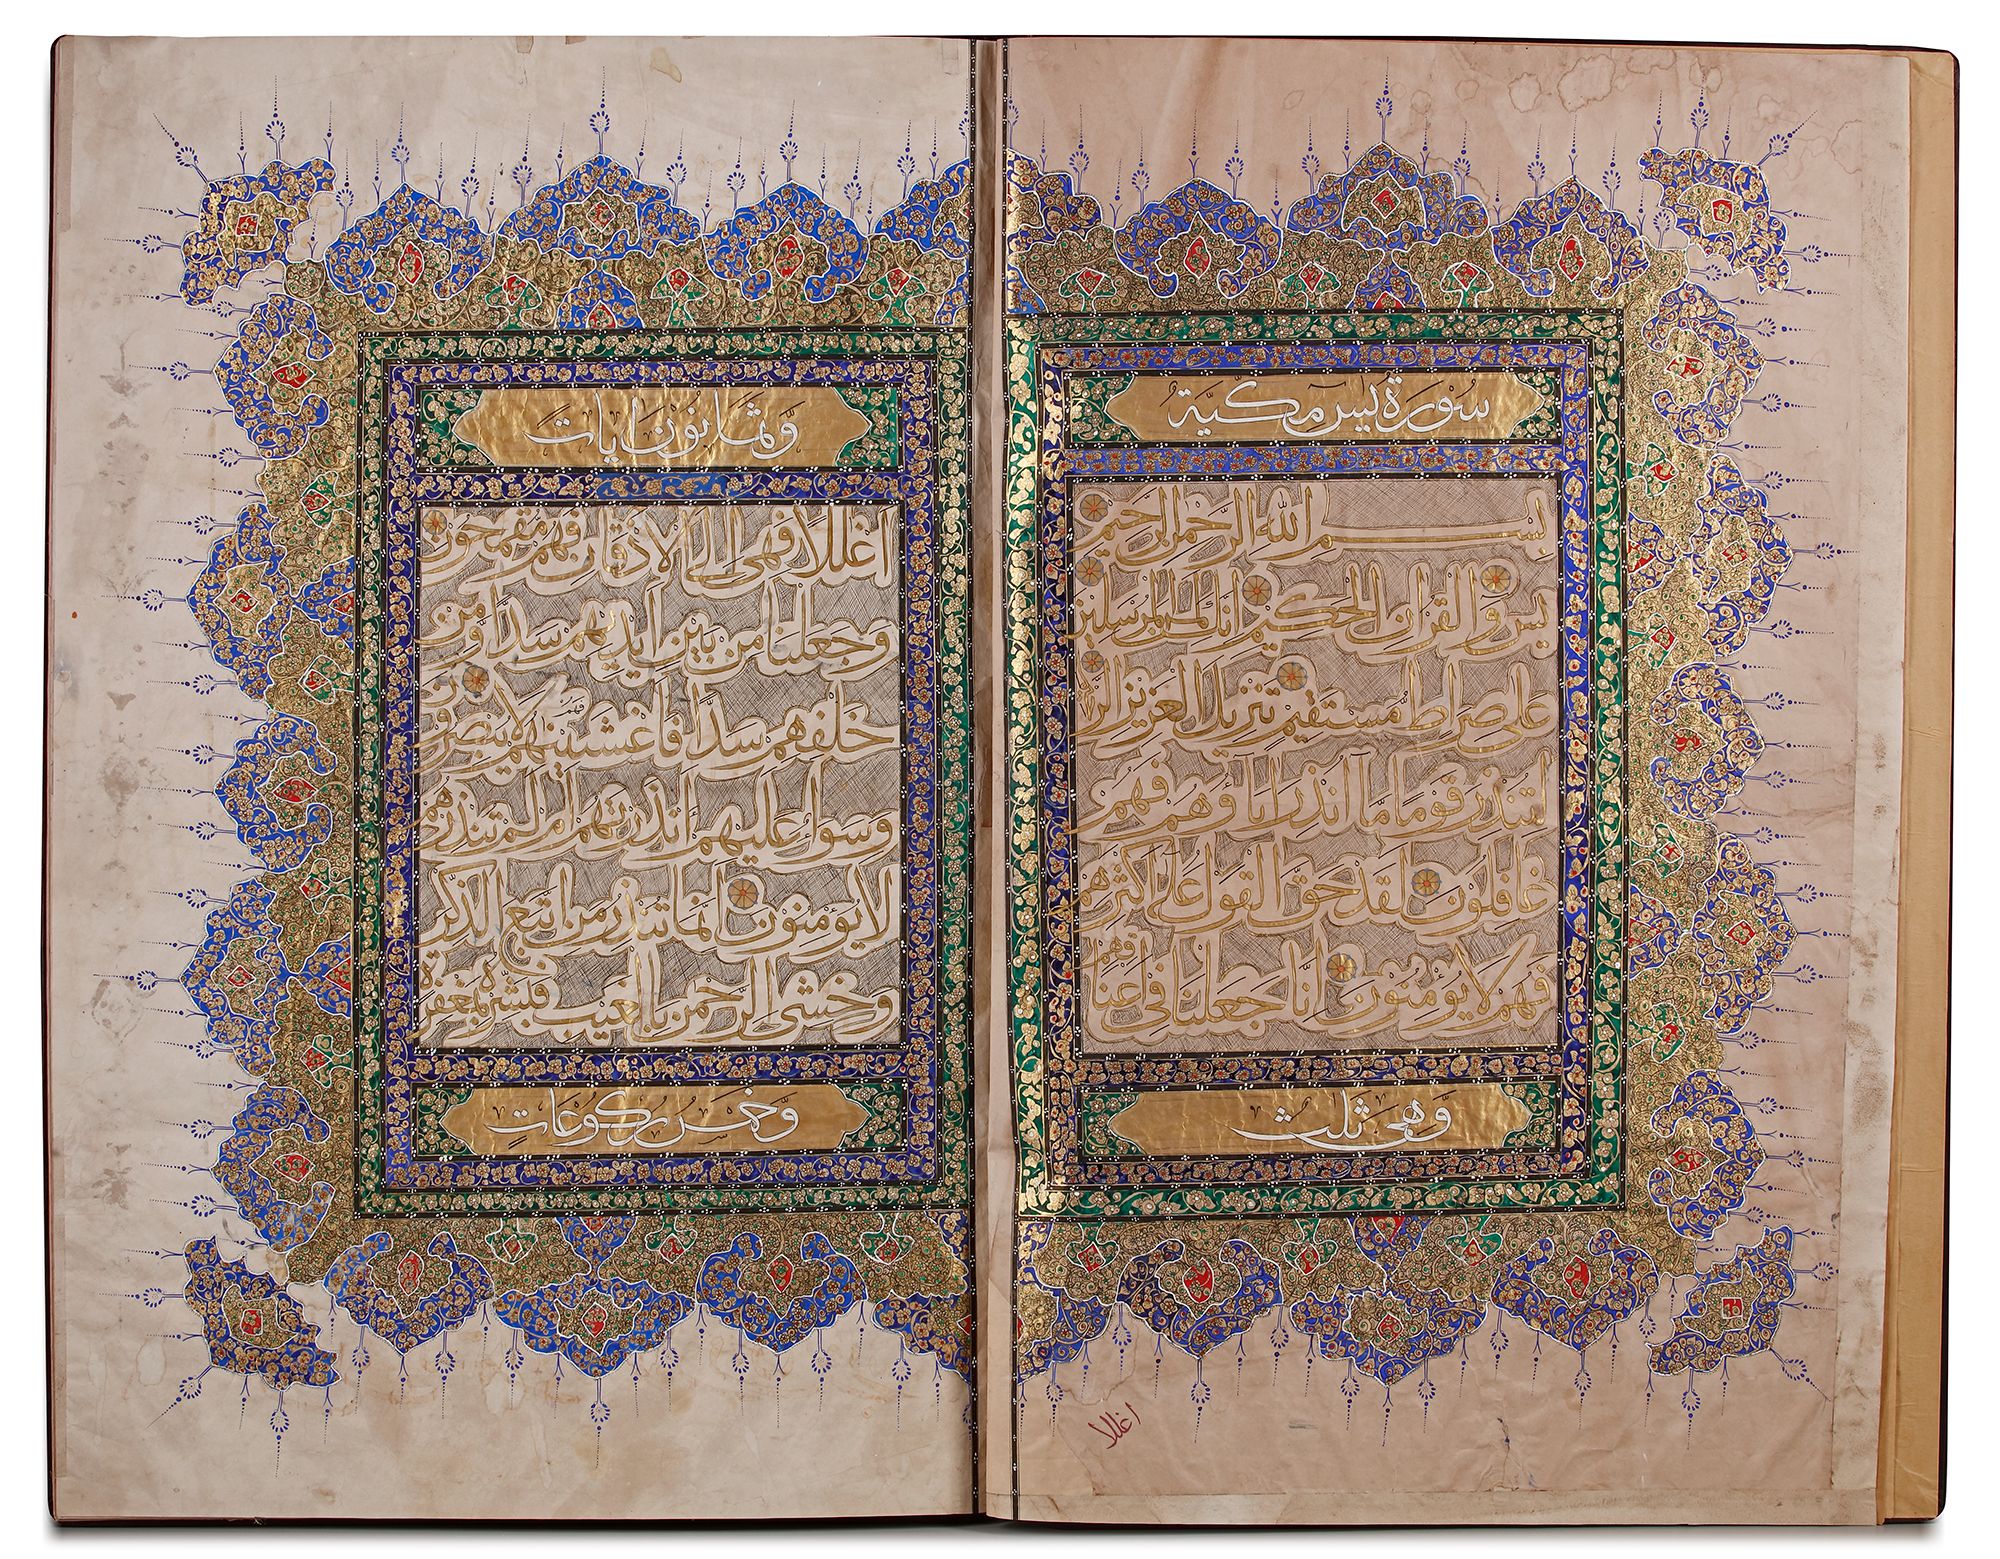 سُوْرَة يٰسٓ مكّيّة
بسم الله الرحمن الرحيم
يس والقران الحكيم انك لمن المرسلين
على صراط مستقيم تنزيل العزيز الر
لتنذر قوما مآ انذر اباؤهم فهم
غافلون لقد حق القول على اكثرهم
فهم لا يؤمنون انا جعلنا فى اعناقهم
وهى ثلث
اغلالا
وثمانون ايات
اغللا فهى الى الاذقان فهم مقمحون
وجعلنا من بين ايديهم سدا ومن
خلفهم سدا فاغشينهم فهم لا يبصرون
وسواء عليهم أنذرتهم ام لم تنذرهم
لا يؤمنون انما تنذر من اتبع الذكر
وخشى الرحمن بالغيب فبشره بمغفرة
وخمس ركوعات